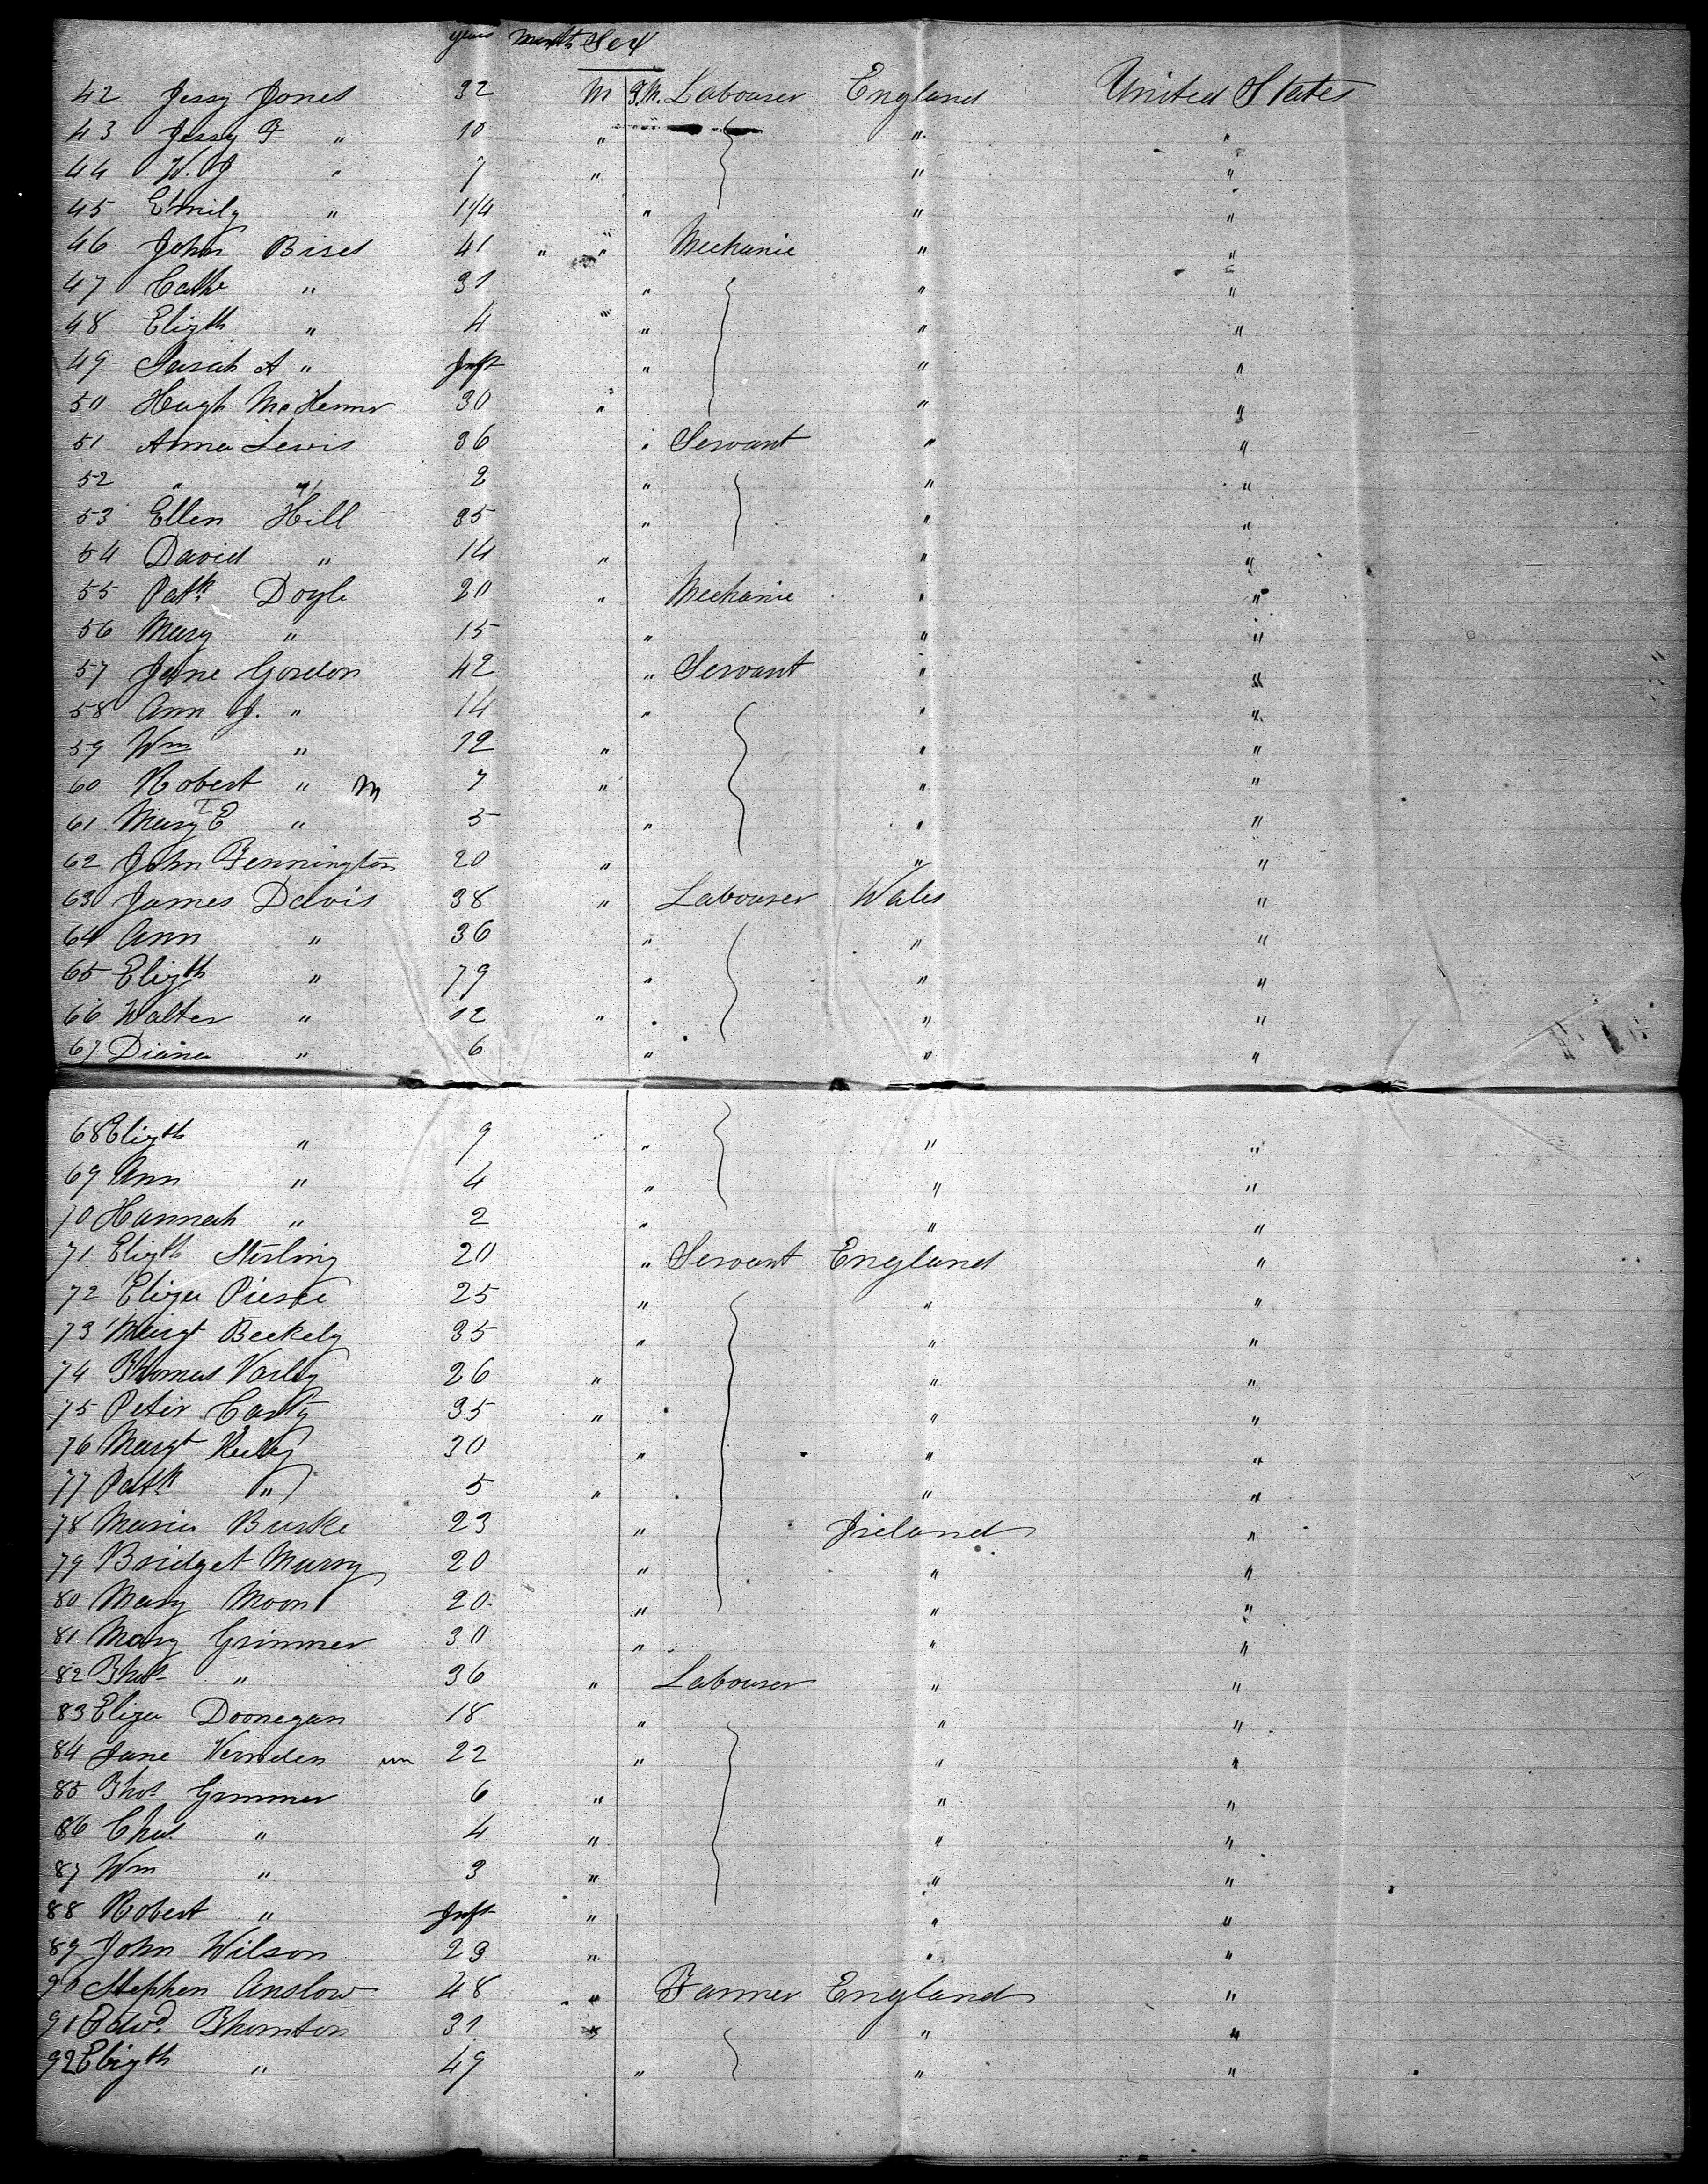 years Month Sex
42 Jessy Jones 32 M F.M. Labourer England United States
43 Jessy F " 10 " " "
44 W. J " 7 " " "
45 Emily " 1 1/4 " " "
46 John Bised 41 " " Mechanic " "
47 Cathe " 31 " " "
48 Elizth " 4 " " "
49 Sarah A " Inft " " "
50 Hugh 30 " " "
51 Anna Lewis 36 " Servant " "
52 " " 2 " " "
53 Ellen Hill 35 " " "
54 David " 14 " " "
55 Patk Doyle 20 " Mechanic " "
56 Mary " 15 " " "
57 Jane Gordon 42 " Servant " "
58 Ann J. " 14 " " "
59 Wm " 12 " " "
60 Robert " M 7 " " "
61 Mary E " 5 " " "
62 John Fennington 20 " " "
63 James Davis 38 " Labourer Wales "
64 Ann " 36 " " "
65 Elizth " 79 " " "
66 Walter " 12 " " "
67 Diana " 6 " " "
68 Elizth " 9 " " "
69 Ann " 4 " " "
70 Hannah " 2 " " "
71 Elizth Sterling 20 " Servant England "
72 Eliza Pierce 25 " " "
73 Margt Beckely 35 " " "
74 Thomas Varley 26 " " "
75 Peter Carty 35 " " "
76 Margt Kelly 30 " " "
77 Patk " 5 " " "
78 Maria Burke 23 " Ireland "
79 Bridget Murry 20 " " "
80 Mary Moon 20 " " "
81 Mary Grimmer 30 " " "
82 Thos " 36 " Labourer " "
83 Eliza Doonegan 18 " " "
84 Jane Vernden 22 " " "
85 Thos Grimmer 6 " " "
86 Chas " 4 " " "
87 Wm " 3 " " "
88 Robert " Inft " " "
89 John Wilson 23 " " "
90 Stephen Anslow 48 " Farmer England "
91 Edwd Thornton 31 " " "
92 Elizth " 49 " " "